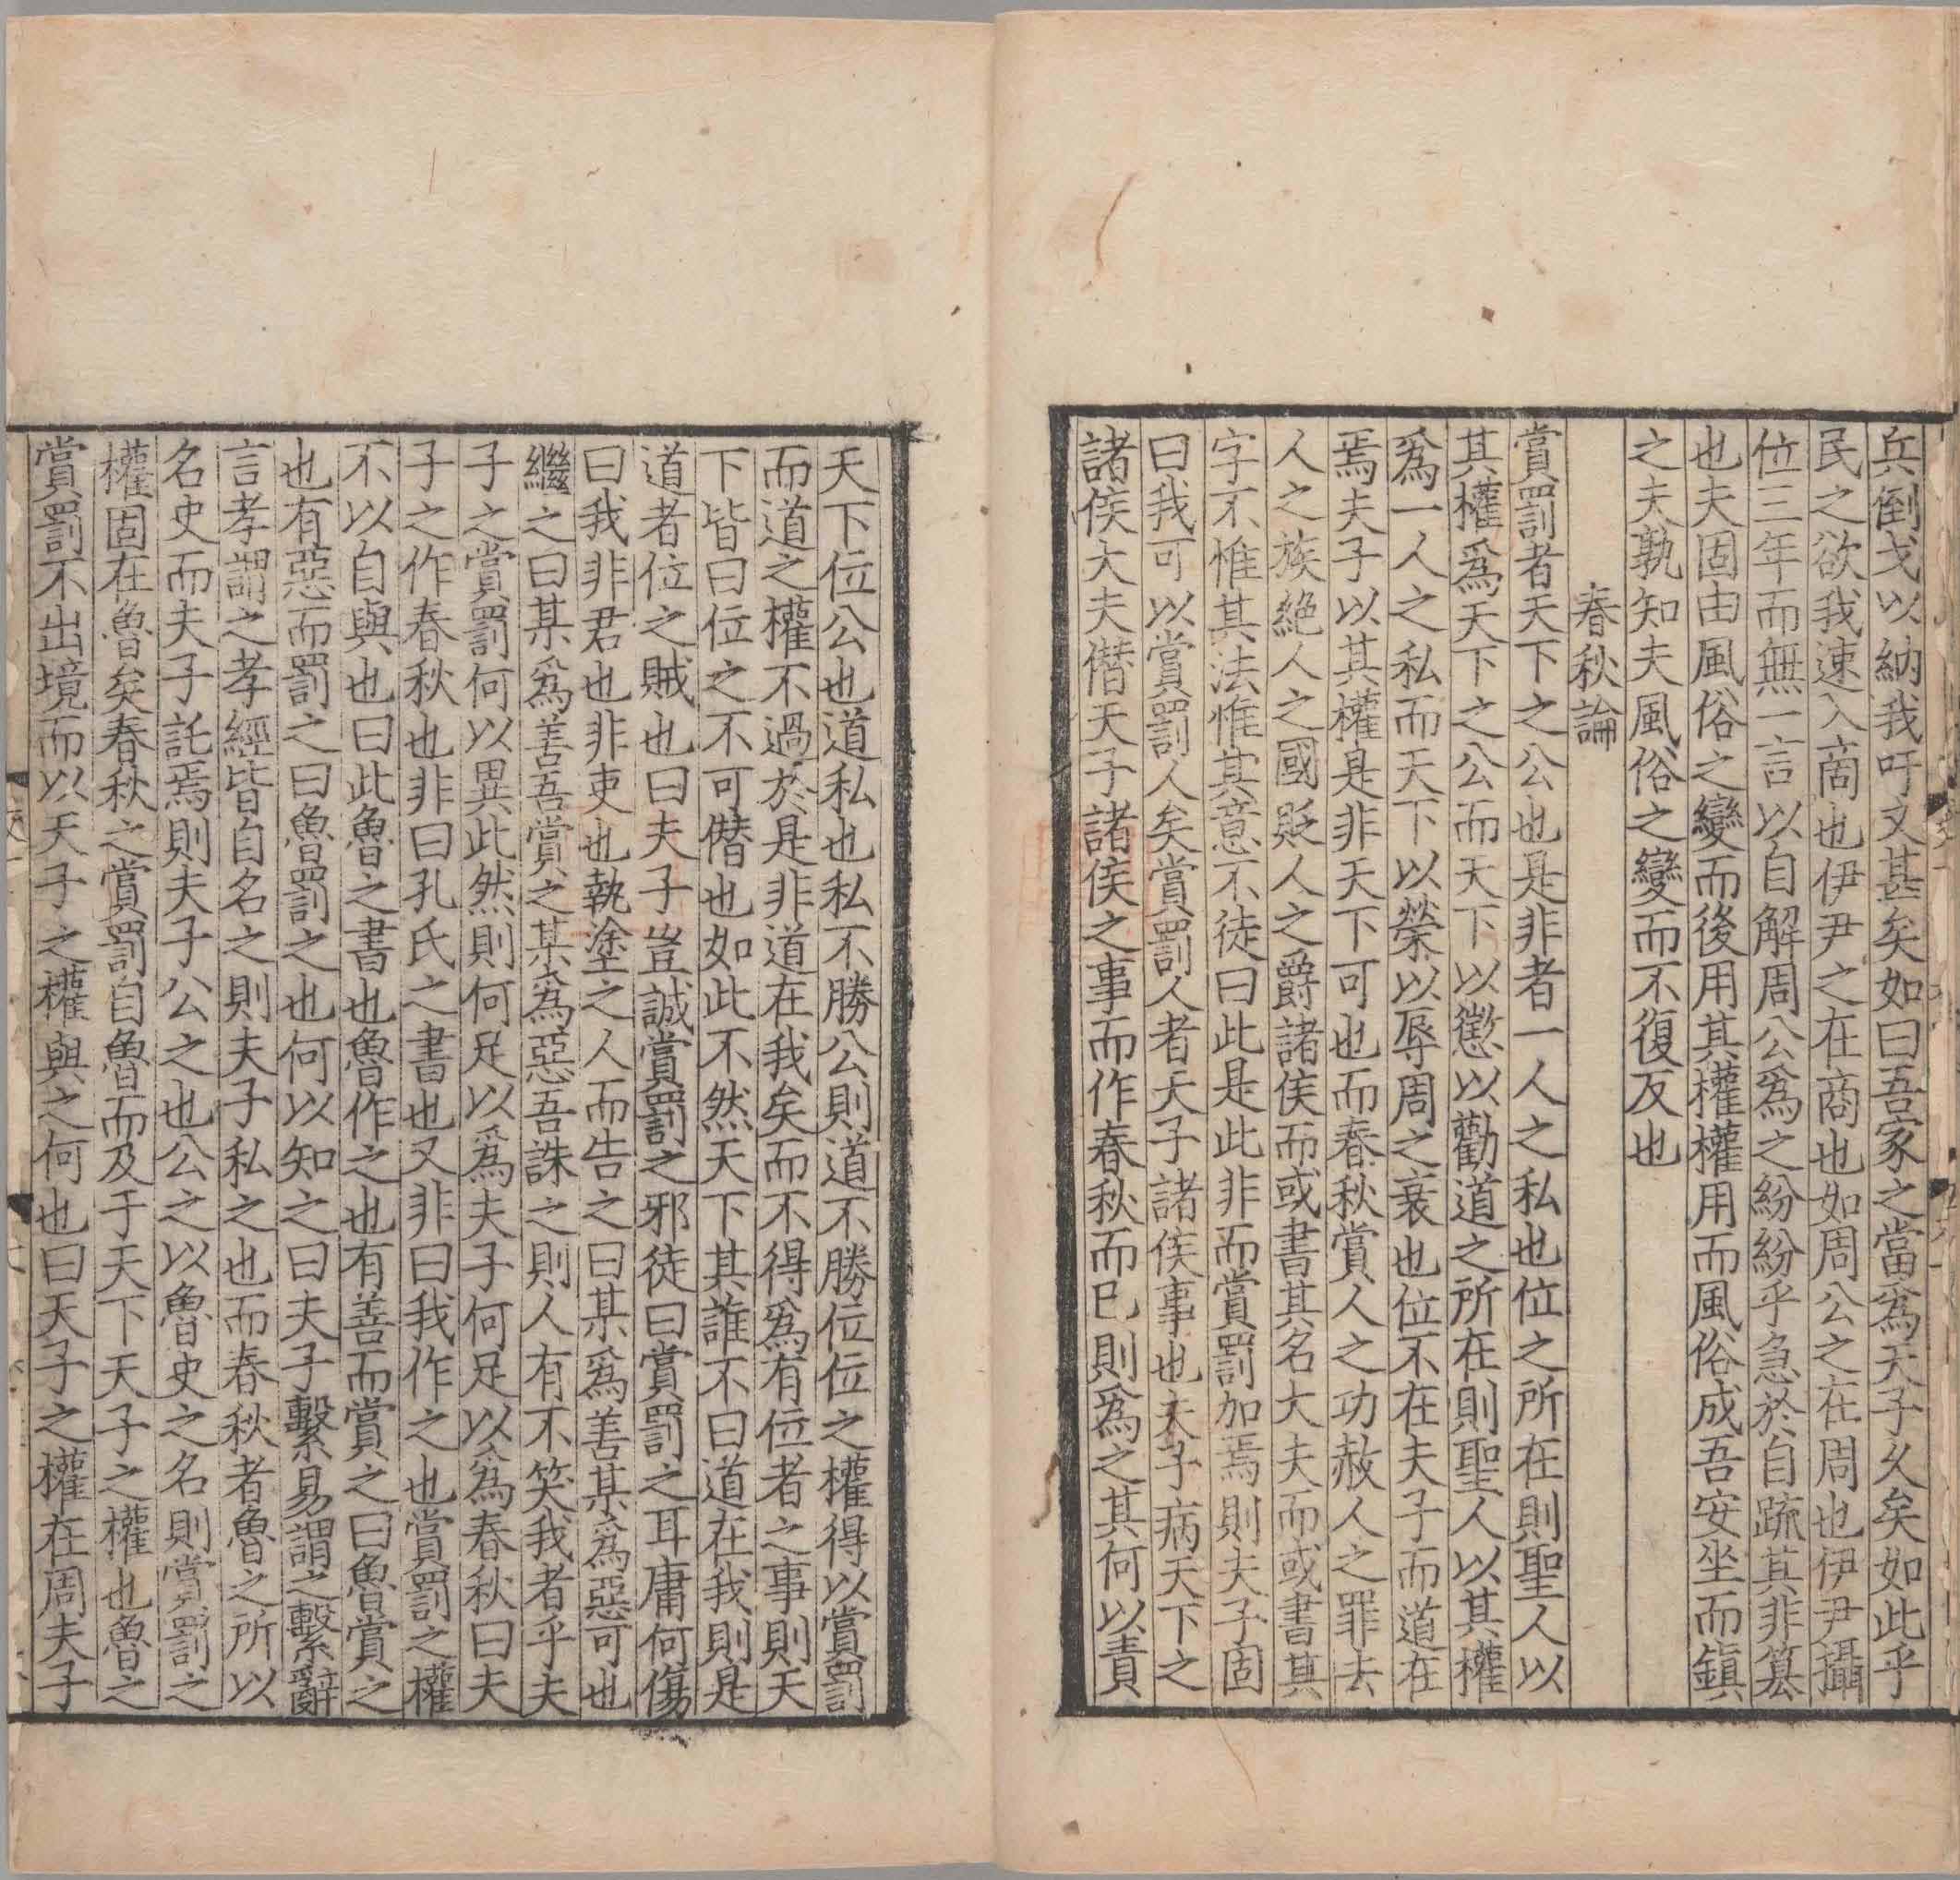 兵倒戈以納我吁又甚矣如曰吾家之當爲天子久矣如此乎
民之欲我速入商也伊尹之在商也如周公之在周也伊尹攝
位三年而無一言以自解周公爲之紛紛乎急於自疏其非篡
也夫固由風俗之變而後用其權權用而風俗成吾安坐而鎮
之夫孰知夫風俗之變而不復反也
春秋論
賞罰者天下之公也是非者一人之私也位之所在則聖人以
其權爲天下之公而天下以懲以勸道之所在則聖人以其權
爲一人之私而天下以榮以辱周之衰也位不在夫子而道在
焉夫子以其權是非天下可也而春秋賞人之功赦人之罪去
人之族絕人之國貶人之爵諸侯而或書其名大夫而或書其
字不惟其法惟其意不徒曰此是此非而賞罰加焉則夫子固
曰我可以賞罰人矣賞罰人者天子諸侯事也夫子病天下之
諸侯大夫僭天子諸侯之事而作春秋而已則爲之其何以責
天下位公也道私也私不勝公則道不勝位位之權得以賞罰
而道之權不過於是非道在我矣而不得爲有位者之事則天
下皆曰位之不可僭也如此不然天下其誰不曰道在我則是
道者位之賊也曰夫子豈誠賞罰之邪徒曰賞罰之耳庸何傷
曰我非君也非吏也執塗之人而告之曰某爲善某爲惡可也
繼之曰某爲善吾賞之某爲惡吾誅之則人有不笑我者乎夫
子之賞罰何以異此然則何足以爲夫子何足以爲春秋曰夫
子之作春秋也非曰孔氏之書也又非曰我作之也賞罰之權
不以自與也曰此魯之書也魯作之也有善而賞之曰魯賞之
也有惡而罰之曰魯罰之也何以知之曰夫子繫易謂之繫辭
言孝謂之孝經皆自名之則夫子私之也而春秋者魯之所以
名史而夫子託焉則夫子公之也公之以魯史之名則賞罰之
權固在魯矣春秋之賞罰自魯而及于天下天子之權也魯之
賞罰不出境而以天子之權與之何也曰天子之權在周夫子